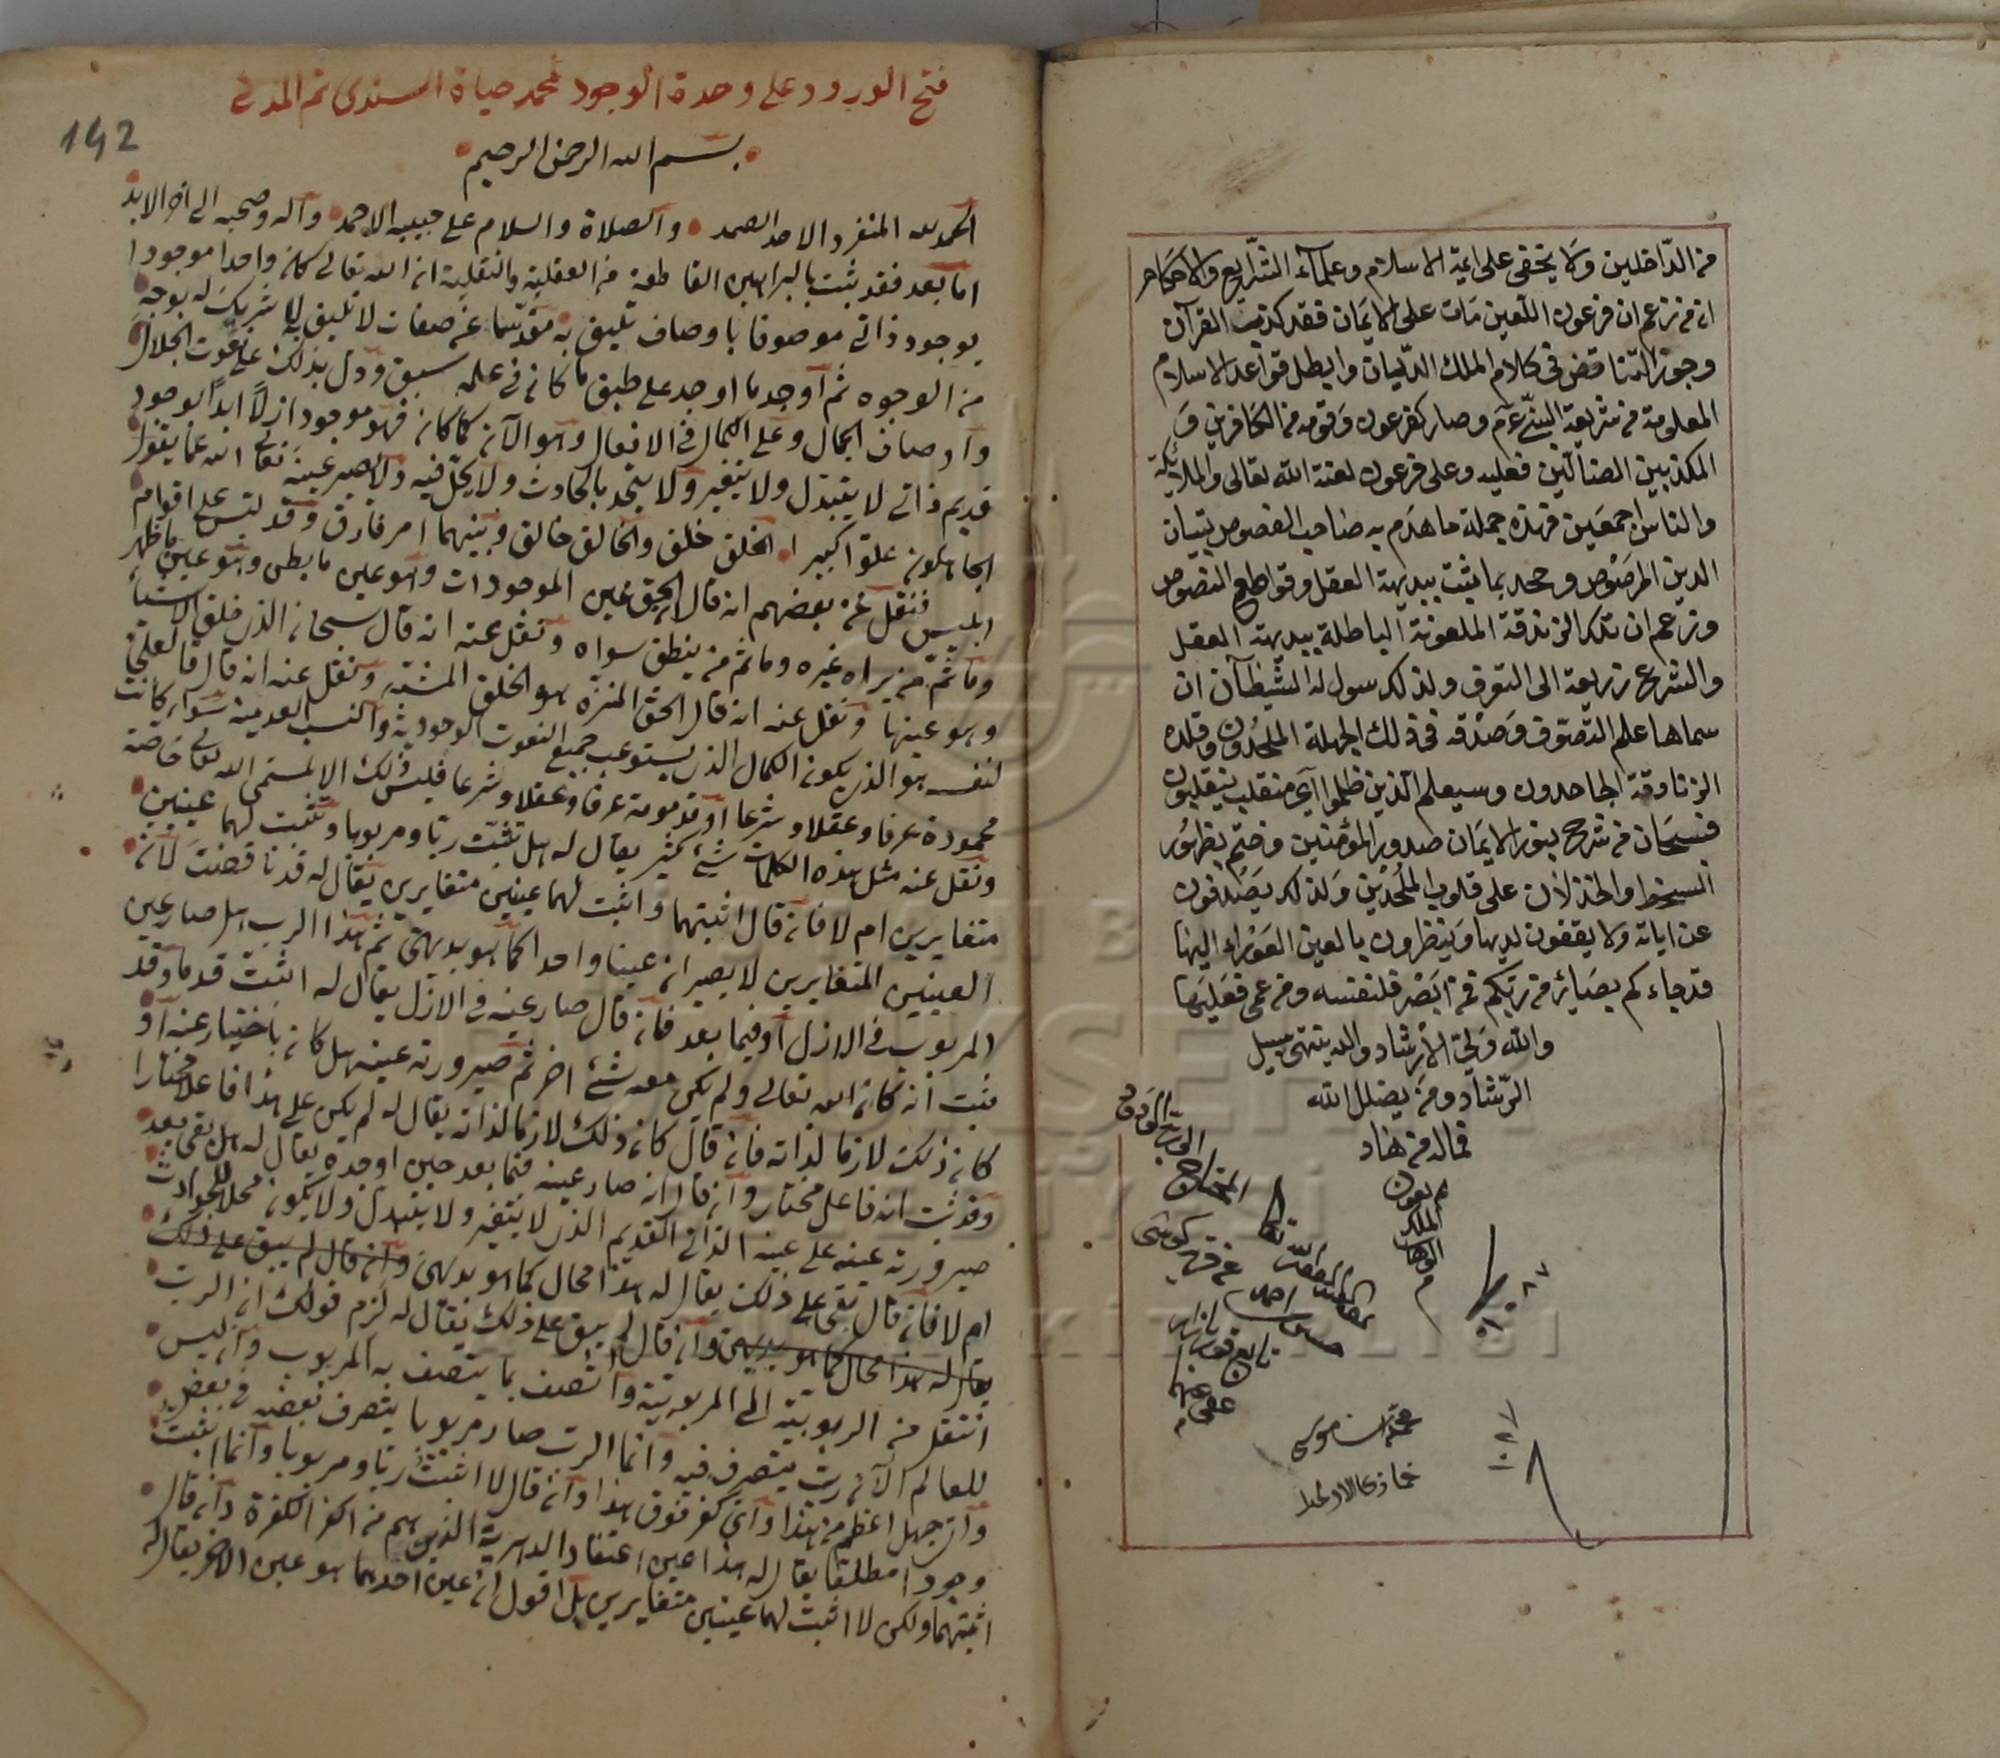 من الدّاخلين ولا يخفى على ائمة الاسلام وعلماء الشرايع والاحكام
ان من زعم ان فرعون اللعين مات على الايمان فقد كذب القرآن
وجوز التناقض فى كلام الملك الديان وابطل قواعد الاسلام
المعلومة من شريعة النبي عم وصار كفرعون وقومه من الكافرين و
المكذبين الضالين فعليه وعلى فرعون لعنة الله تعالى والملائكة
والناس اجمعين فهذه جملة ما هدم به صاحب الفصوص بنيان
الدين المرصوص وجحد بما يثبت ببديهة العقل وقواطع النصوص
وزعم ان تلك الزندقة الملعونة الباطلة ببديهة العقل
والشرع ذريعة الى التعرف ولذلك سول له الشيطان ان
سماها علم التصوف وصدقه فى ذلك الجهلة الملحدون وقلده
الزنادقة الجاحدون وسيعلم الذين ظلموا اي منقلب ينقلبون
فسبحان من شرح بنور الايمان صدور المؤمنين وختم بظهور
السخط والخذلان على قلوب الملحدين ولذلك يصدفون
عن اياته ولا يقفون لديها وينظرون بالعين العوراء اليها
قد جاءكم بصائر من ربكم فمن ابصر فلنفسه ومن عمى فعليها
والله ولي الارشاد واليه ينتهى سبيل
الرشاد ومن يضلل الله
فماله من هاد
م بعون
الملك
الوهاب
م
١٠٨٧
١٠٢٧
فتح الورود على وحدة الوجود لمحمد حياة السندى ثم المدنى
142
بسم الله الرحمن الرحيم
الحمد لله المنفرد الاحد الصمد والصلاة والسلام على حبيبه الاحمد وآله وصحبه الى اخر الابد
اما بعد فقد ثبت بالبراهين القاطعة من العقلية والنقلية ان الله تعالى كان واحدا موجودا
بوجود ذاتى موصوفا باوصاف تليق به مقدسا عن صفات لا تليق به لا شريك له بوجه
من الوجوه ثم اوجد ما اوجد على طبق ما كان فى علمه سبق ودل بذلك على نعوت الجلال
واوصاف الجمال وعلى الكمال فى الافعال وهو الآن كما كان فهو موجود ازلا ابدا بوجود
قديم ذاتى لا يتبدل ولا يتغير ولا يتحد بالحادث ولا يحل فيه ولا يصير عينه تعالى الله عما يقول
الجاهلون علوا كبيرا الخلق خلق والخالق خالق وبينهما امر فارق وقد لبس على اقوام
ابليس فنقل عن بعضهم انه قال الحق عين الموجودات وهو عين ما بطن وهو عين ما ظهر
وما ثم من يراه غيره وما ثم من ينطق سواه ونقل عنه انه قال سبحان الذى خلق الاشياء
وهو عينها ونقل عنه انه قال الحق المنزه هو الخلق المشبه ونقل عنه انه قال فالعلى
لنفسه هو الذى يكون له الكمال الذى يستوعب جميع النعوت الوجودية والنسب العدمية سواء كانت
محمودة عرفا وعقلا وشرعا او مذمومة عرفا وعقلا وشرعا فليس ذلك الا لمسمى الله تعالى خاصة
ونقل عنه مثل هذه الكلمات شئ كثير يقال له هل تثبت ربا ومربوبا وتثبت لهما عينين
متغايرين ام لا فان قال اثبتهما واثبت لهما عينين متغايرين يقال له قد ناقضت لان
العينين المتغايرين لا يصيران عينا واحدا كما هو بديهى ثم هذا الرب هل صار عين
المربوب فى الازل او فيما بعد فان قال صار عينه فى الازل يقال له اثبت قدمه وقد
ثبت انه كان الله تعالى ولم يكن معه شئ اخر ثم صيرورته عينه هل كان باختيار عنه او
كان ذلك لازما لذاته فان قال كان ذلك لازما لذاته يقال له لم يكن على هذا فاعلا مختارا
وقد ثبت انه فاعل مختار وان قال انه صار عينه فيما بعد حين اوجده يقال له هل بقى بعد
صيرورته عينه على عينه الذاتى القديم الذى لا يتغير ولا يتبدل ولا يكون محلا للحوادث
ام لا فان قال بقى على ذلك يقال له هذا محال كما هو بديهى وان قال لم يبق على ذلك
يقال له هذا محال كما هو بديهى وان قال لم يبق على ذلك يقال له لزم قولك ان الرب
انتقل من الربوبية الى المربوبية واتصف بما يتصف به المربوب وان ليس
للعالم الآن رب يتصرف فيه وانما الرب صار مربوبا يتصرف بعضه فى بعض
واى جهل اعظم من هذا واى كفر فوق هذا وان قال لا اثبت ربا ومربوبا وانما اثبت
وجودا مطلقا يقال له هذا عين اعتقاد الدهرية الذين هم من اكفر الكفرة وان قال
اثبتهما ولكن لا اثبت لهما عينين متغايرين بل اقول ان عين احدهما هو عين الاخر يقال له